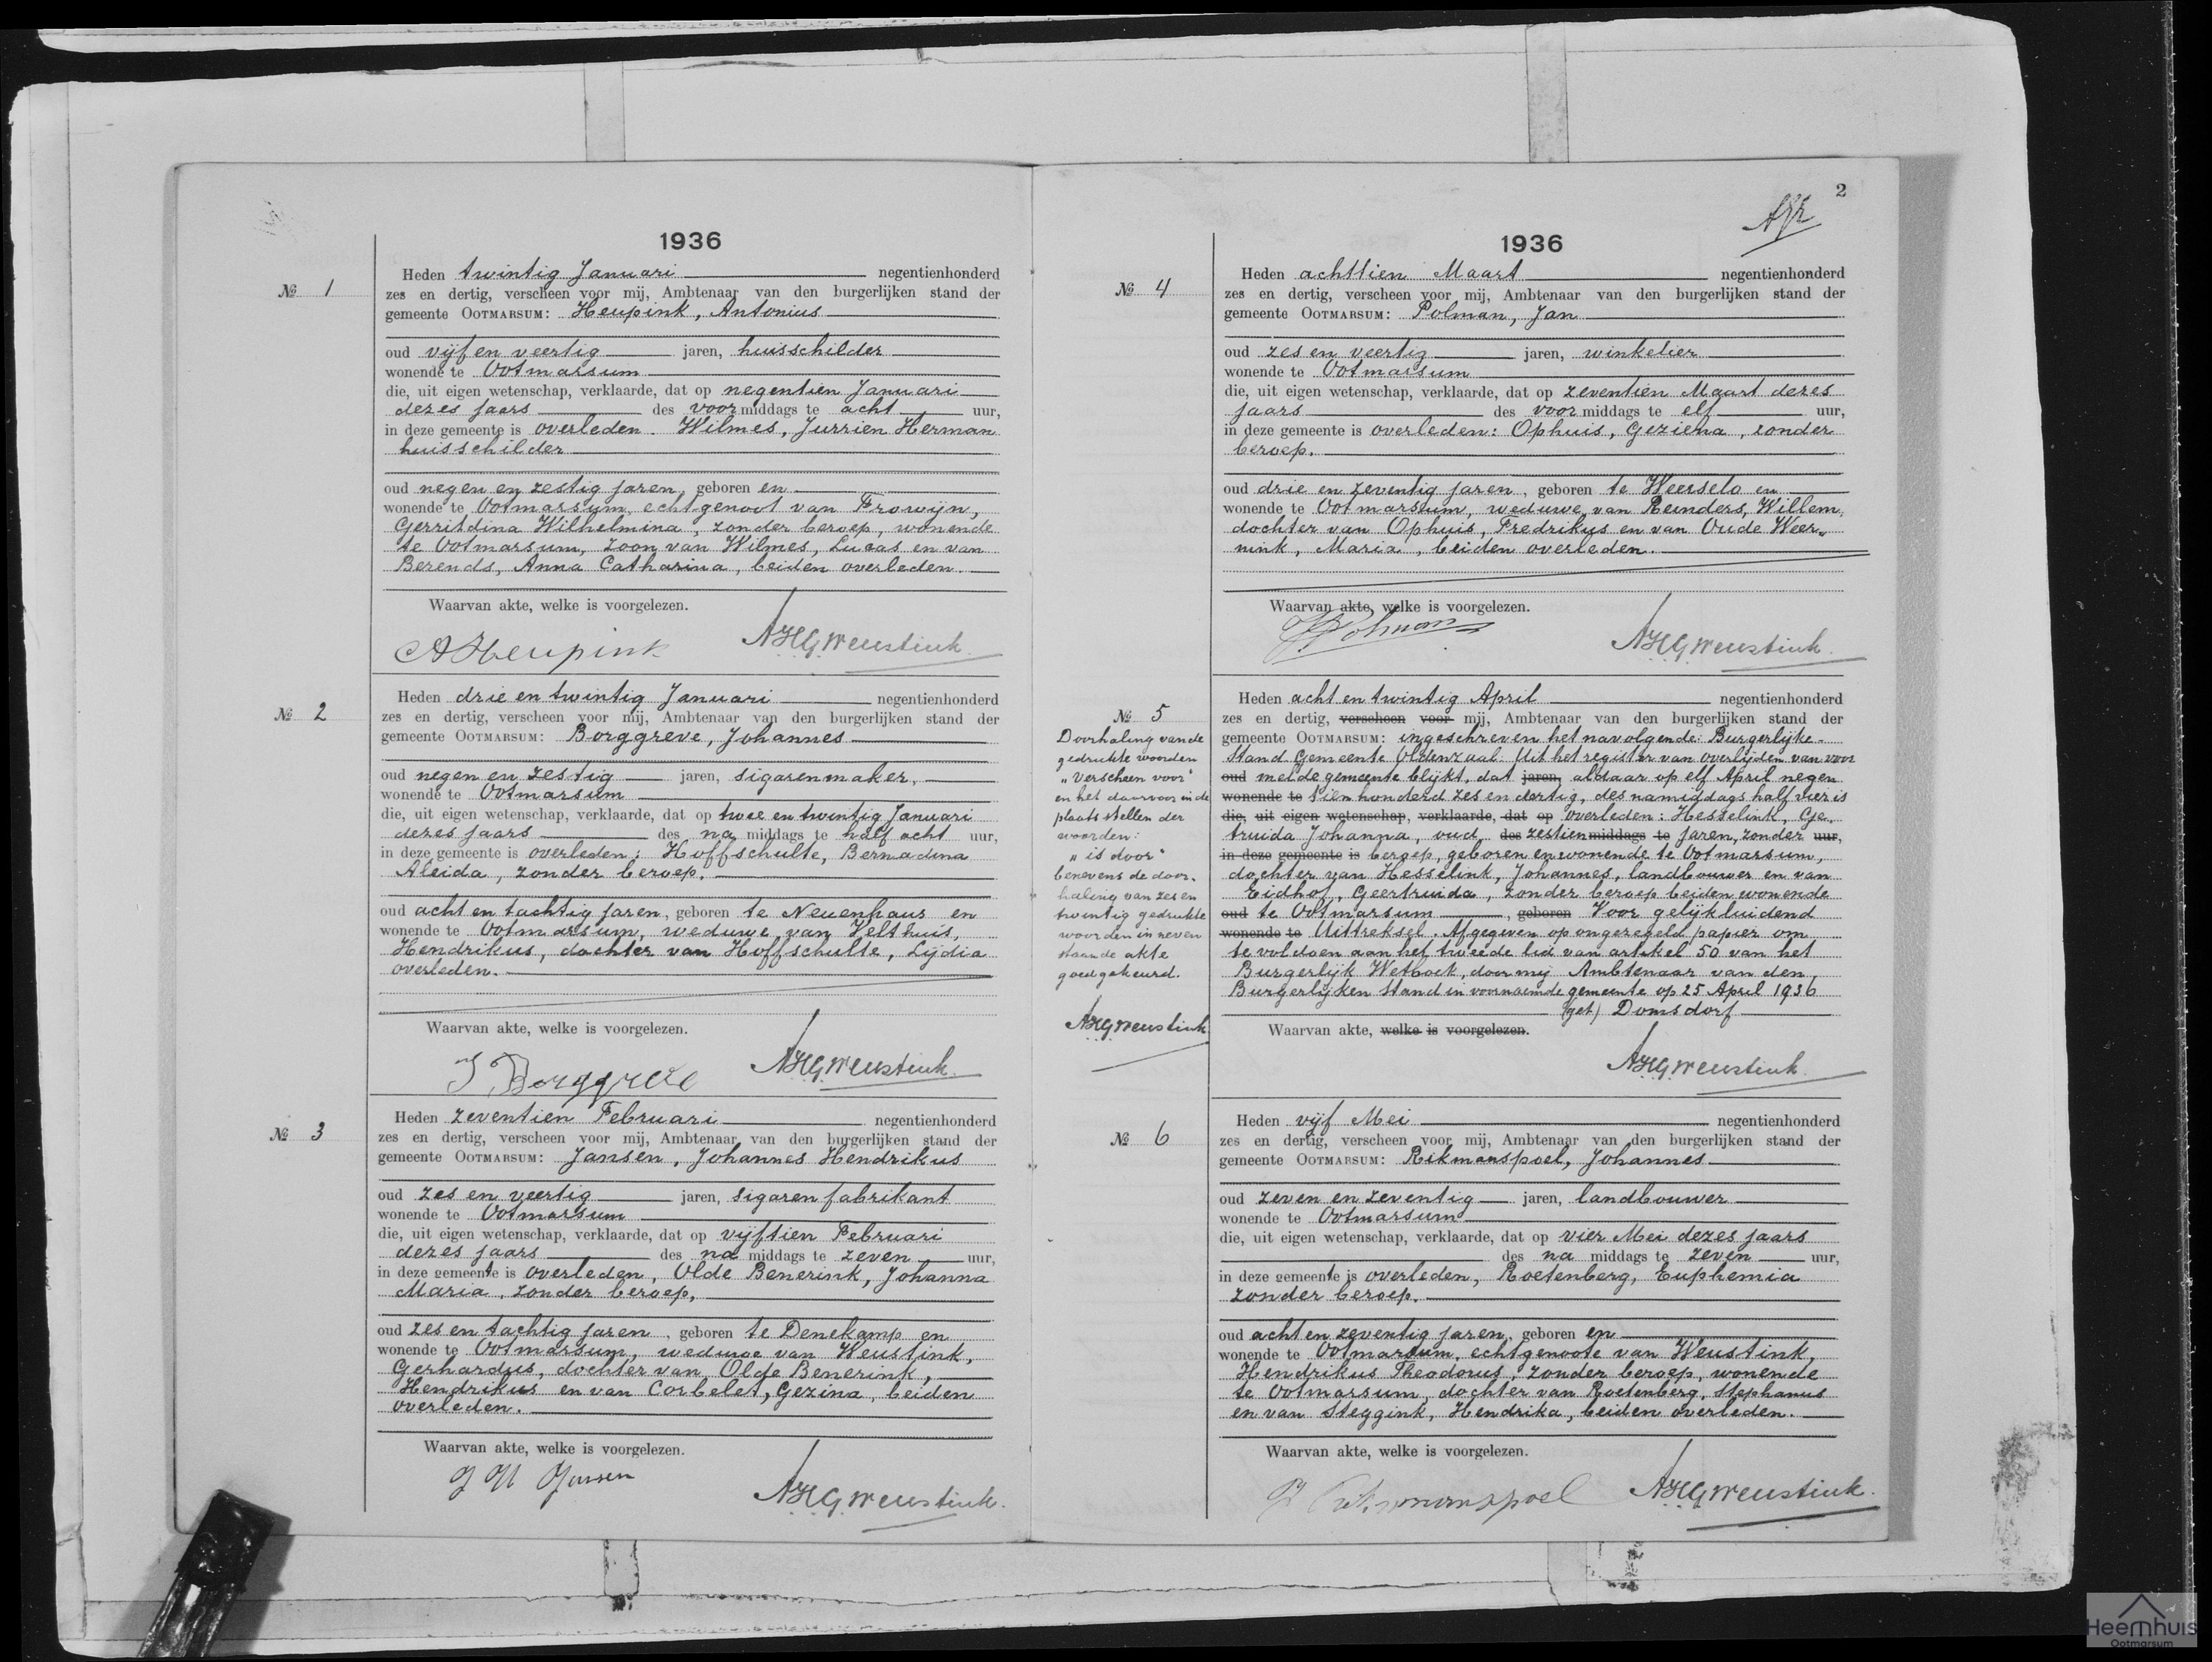 1936
№ 1
Heden twintig Januari negentienhonderd
zes en dertig, verscheen voor mij, Ambtenaar van den burgerlijken stand der
gemeente OOTMARSUM: Heupink, Antonius
oud vijf en veertig jaren, huisschilder
wonende te Ootmarsum
die, uit eigen wetenschap, verklaarde, dat op negentien Januari
dezes jaars des voormiddags te acht uur,
in deze gemeente is overleden. Wilmes, Jurrien Herman
huisschilder
oud negen en zestig jaren, geboren en
wonende te Ootmarsum, echtgenoot van Frowijn,
Gerritdina Wilhelmina, zonder beroep, wonende
te Ootmarsum, zoon van Wilmes, Lucas en van
Berends, Anna Catharina, beiden overleden.
Waarvan akte, welke is voorgelezen.
A Heupink AHGWeustink
№ 2
Heden drie en twintig Januari negentienhonderd
zes en dertig, verscheen voor mij, Ambtenaar van den burgerlijken stand der
gemeente OOTMARSUM: Borggreve, Johannes
oud negen en zestig jaren, sigarenmaker,
wonende te Ootmarsum
die, uit eigen wetenschap, verklaarde, dat op twee en twintig Januari
dezes jaars des na middags te half acht uur,
in deze gemeente is overleden: Hoffschulte, Bernadina
Aleida, zonder beroep.
oud acht en tachtig jaren, geboren te Neuenhaus en
wonende te Ootmarsum, weduwe van Velthuis,
Hendrikus, dochter van Hoffschulte, Lydia
overleden.
Waarvan akte, welke is voorgelezen.
J Borggreve AHGWeustink
№ 3
Heden zeventien Februari negentienhonderd
zes en dertig, verscheen voor mij, Ambtenaar van den burgerlijken stand der
gemeente OOTMARSUM: Jansen, Johannes Hendrikus
oud zes en veertig jaren, sigarenfabrikant
wonende te Ootmarsum
die, uit eigen wetenschap, verklaarde, dat op vijftien Februari
dezes jaars des na middags te zeven uur,
in deze gemeente is overleden, Olde Benerink, Johanna
Maria, zonder beroep,
oud zes en tachtig jaren, geboren te Denekamp en
wonende te Ootmarsum, weduwe van Weustink,
Gerhardus, dochter van Olde Benerink,
Hendrikus en van Corbelet, Gezina, beiden
overleden.
Waarvan akte, welke is voorgelezen.
J H Jansen AHGWeustink
2
1936
№ 4
Heden achttien Maart negentienhonderd
zes en dertig, verscheen voor mij, Ambtenaar van den burgerlijken stand der
gemeente OOTMARSUM: Polman, Jan
oud zes en veertig jaren, winkelier
wonende te Ootmarsum
die, uit eigen wetenschap, verklaarde, dat op zeventien Maart dezes
jaars des voor middags te elf uur,
in deze gemeente is overleden: Ophuis, Geziena, zonder
beroep.
oud drie en zeventig jaren, geboren te Weerselo en
wonende te Ootmarsum, weduwe van Reinders, Willem,
dochter van Ophuis, Fredrikus en van Oude Weer„
nink, Maria, beiden overleden.
Waarvan akte, welke is voorgelezen.
J Polman AHGWeustink
№ 5
Doorhaling van de
gedrukte woorden
„verscheen voor"
en het daarvoor in de
plaats stellen der
woorden:
„is door"
benevens de door„
haling van zes en
twintig gedrukte
woorden in neven
staande akte
goedgekeurd.
AHGWeustink
Heden acht en twintig April negentienhonderd
zes en dertig, verscheen voor mij, Ambtenaar van den burgerlijken stand der
gemeente OOTMARSUM: ingeschreven het navolgende: Burgerlijke-
Stand Gemeente Oldenzaal. Uit het register van overlijden van voor
oud melde gemeente blijkt, dat jaren, aldaar op elf April negen
wonende te tien honderd zes en dertig, des namiddags half vier is
die, uit eigen wetenschap, verklaarde, dat op overleden: Hesselink, Ge„
truida Johanna, oud des zestien middags te jaren, zonder uur,
in deze gemeente is beroep, geboren en wonende te Ootmarsum,
dochter van Hesselink, Johannes, landbouwer en van
Eidhof, Geertruida, zonder beroep beiden wonende
oud te Ootmarsum, geboren Voor gelijkluidend
wonende te Uittreksel. Afgegeven op ongezegeld papier om
te voldoen aan het tweede lid van artikel 50 van het
Burgerlijk Wetboek, door mij Ambtenaar van den
Burgerlijken Stand in voornoemde gemeente op 25 April 1936
(get) Domsdorf
Waarvan akte, welke is voorgelezen.
AHGWeustink
№ 6
Heden vijf Mei negentienhonderd
zes en dertig, verscheen voor mij, Ambtenaar van den burgerlijken stand der
gemeente OOTMARSUM: Rikmanspoel, Johannes
oud zeven en zeventig jaren, landbouwer
wonende te Ootmarsum
die, uit eigen wetenschap, verklaarde, dat op vier Mei dezes jaars
des na middags te zeven uur,
in deze gemeente is overleden, Roetenberg, Euphemia
zonder beroep.
oud acht en zeventig jaren, geboren en
wonende te Ootmarsum, echtgenoote van Weustink,
Hendrikus Theodorus, zonder beroep, wonende
te Ootmarsum, dochter van Roetenberg, Stephanus
en van Steggink, Hendrika, beiden overleden.
Waarvan akte, welke is voorgelezen.
J Rikmanspoel AHGWeustink
Heemhuis
Ootmarsum